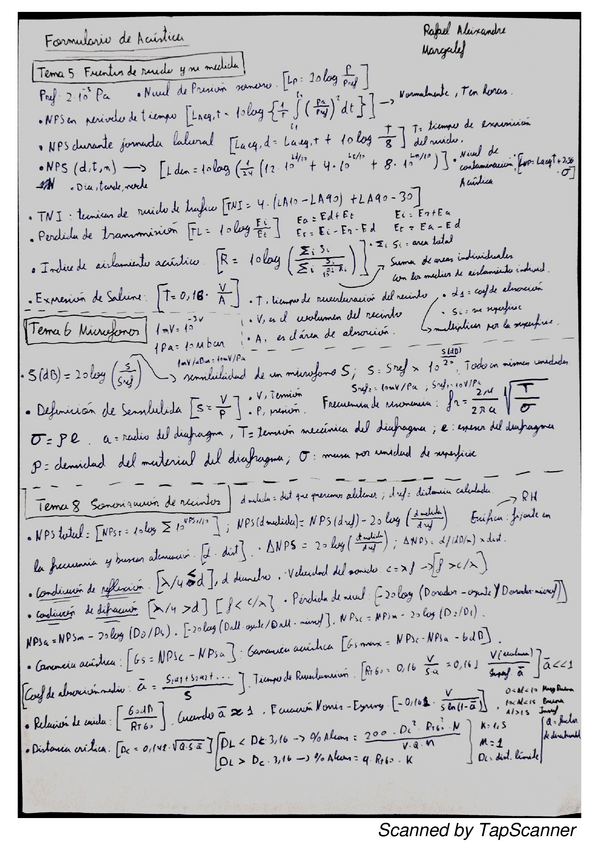 Formulario de Acústica
Rafael Aleixandre
Margalef
Tema 5 Fuentes de ruido y su medida
Pref: 2·10⁻⁵ Pa · Nivel de Presión sonora [Lp = 20log P/Pref]
· NPS en periodo de tiempo [Laeq,t = 10log {1/T ∫ (Pa/Pref)² dt}] → Normalmente, T en horas.
· NPS durante jornada laboral [Laeq,d = Laeq,t + 10log T/8] T = tiempo de exposición del ruido.
· NPS (d,t,n) → [Lden = 10log (1/24 (12·10^(Ld/10) + 4·10^(Le/10) + 8·10^(Ln/10)))] · Nivel de contaminación Acústica
· Dia, tarde, noche
· TNI: tecnicas de ruido de trafico [TNI = 4·(LA10 - LA90) + LA90 - 30]
· Perdida de transmisión [TL = 10log Ei/Et] Ea = Ed + Et Ei = Er + Ea
Er = Ei - Er - Ed Et = Ea - Ed
· Indice de aislamiento acústico [R = 10log (Σi Si / Σi Si/10^(Ri/10))] · Σi Si = area total
Suma de areas individuales con los medios de aislamiento individ.
· Expresión de Sabine: [T = 0,16 · V/A] · T, tiempo de reverberación del recinto · α1 = coef de absorción
· V, es el volumen del recinto · Si = su superficie
· A, es el área de absorción. multiplicas por la superficie.
Tema 6 Micrófonos
1mV = 10⁻³V
1Pa = 10μbar
1mV/μBar = 10mV/Pa
· S(dB) = 20log (S/Sref) → sensibilidad de un microfono S; S = Sref × 10^(S(dB)/20). Todo en mismas unidades
· Definición de Sensibilidad [S = V/P] · V, Tensión
· P, presión. Frecuencia de resonancia: fr = 2,4/2πa √T/σ
σ = ρe. a = radio del diafragma, T = Tensión mecánica del diafragma; e: espesor del diafragma
ρ = densidad del material del diafragma; σ: masa por unidad de superficie
Tema 8 Sonorización de recintos
dmedida = dist que queremos obtener; dref = distancia calculada
· NPStotal: [NPSt = 10log Σ 10^(NPSi/10)]; NPS(dmedida) = NPS(dref) - 20log (dmedida/dref) fijarte en → RH
la frecuencia y buscas atenuación [α · dist]. · ΔNPS = 20log (dmedida/dref); ΔNPS = α(dB/m) × dist.
· Condición de reflexión. [λ/4 ≤ d], d diametro. · Velocidad del sonido c = λf → [f > c/λ]
· condición de difracción [λ/4 > d] [f < c/λ]
· Pérdida de nivel:
NPSa = NPSm - 20log (Do/Ds). NPSc = NPSm - 20log (D2/D1).
· Ganancia acústica: [Gs = NPSc - NPSa] · Ganancia acústica [Gsmax = NPSc - NPSa - 6dB]
[Coef de absorción medio: ā = S1α1 + S2α2 + .../S]. Tiempo de Reverberación. [Rt60 = 0,16 V/Sā] ā << 1
· Relación de caida: [60dB/Rt60]. Cuando ā ≈ 1. Ecuación Norris-Eyring [-0,161 · V/S ln(1-ā)]
· Distancia critica. [Dc = 0,141 · √Q·S·ā] DL < Dc·3,16 → %Alcons = 200·DL²·Rt60²·N/V·Q·M
DL > Dc·3,16 → %Alcons = 9·Rt60·K
K = 1,5
M = 1
DL = dist. límite
Q = factor de directividad
Scanned by TapScanner